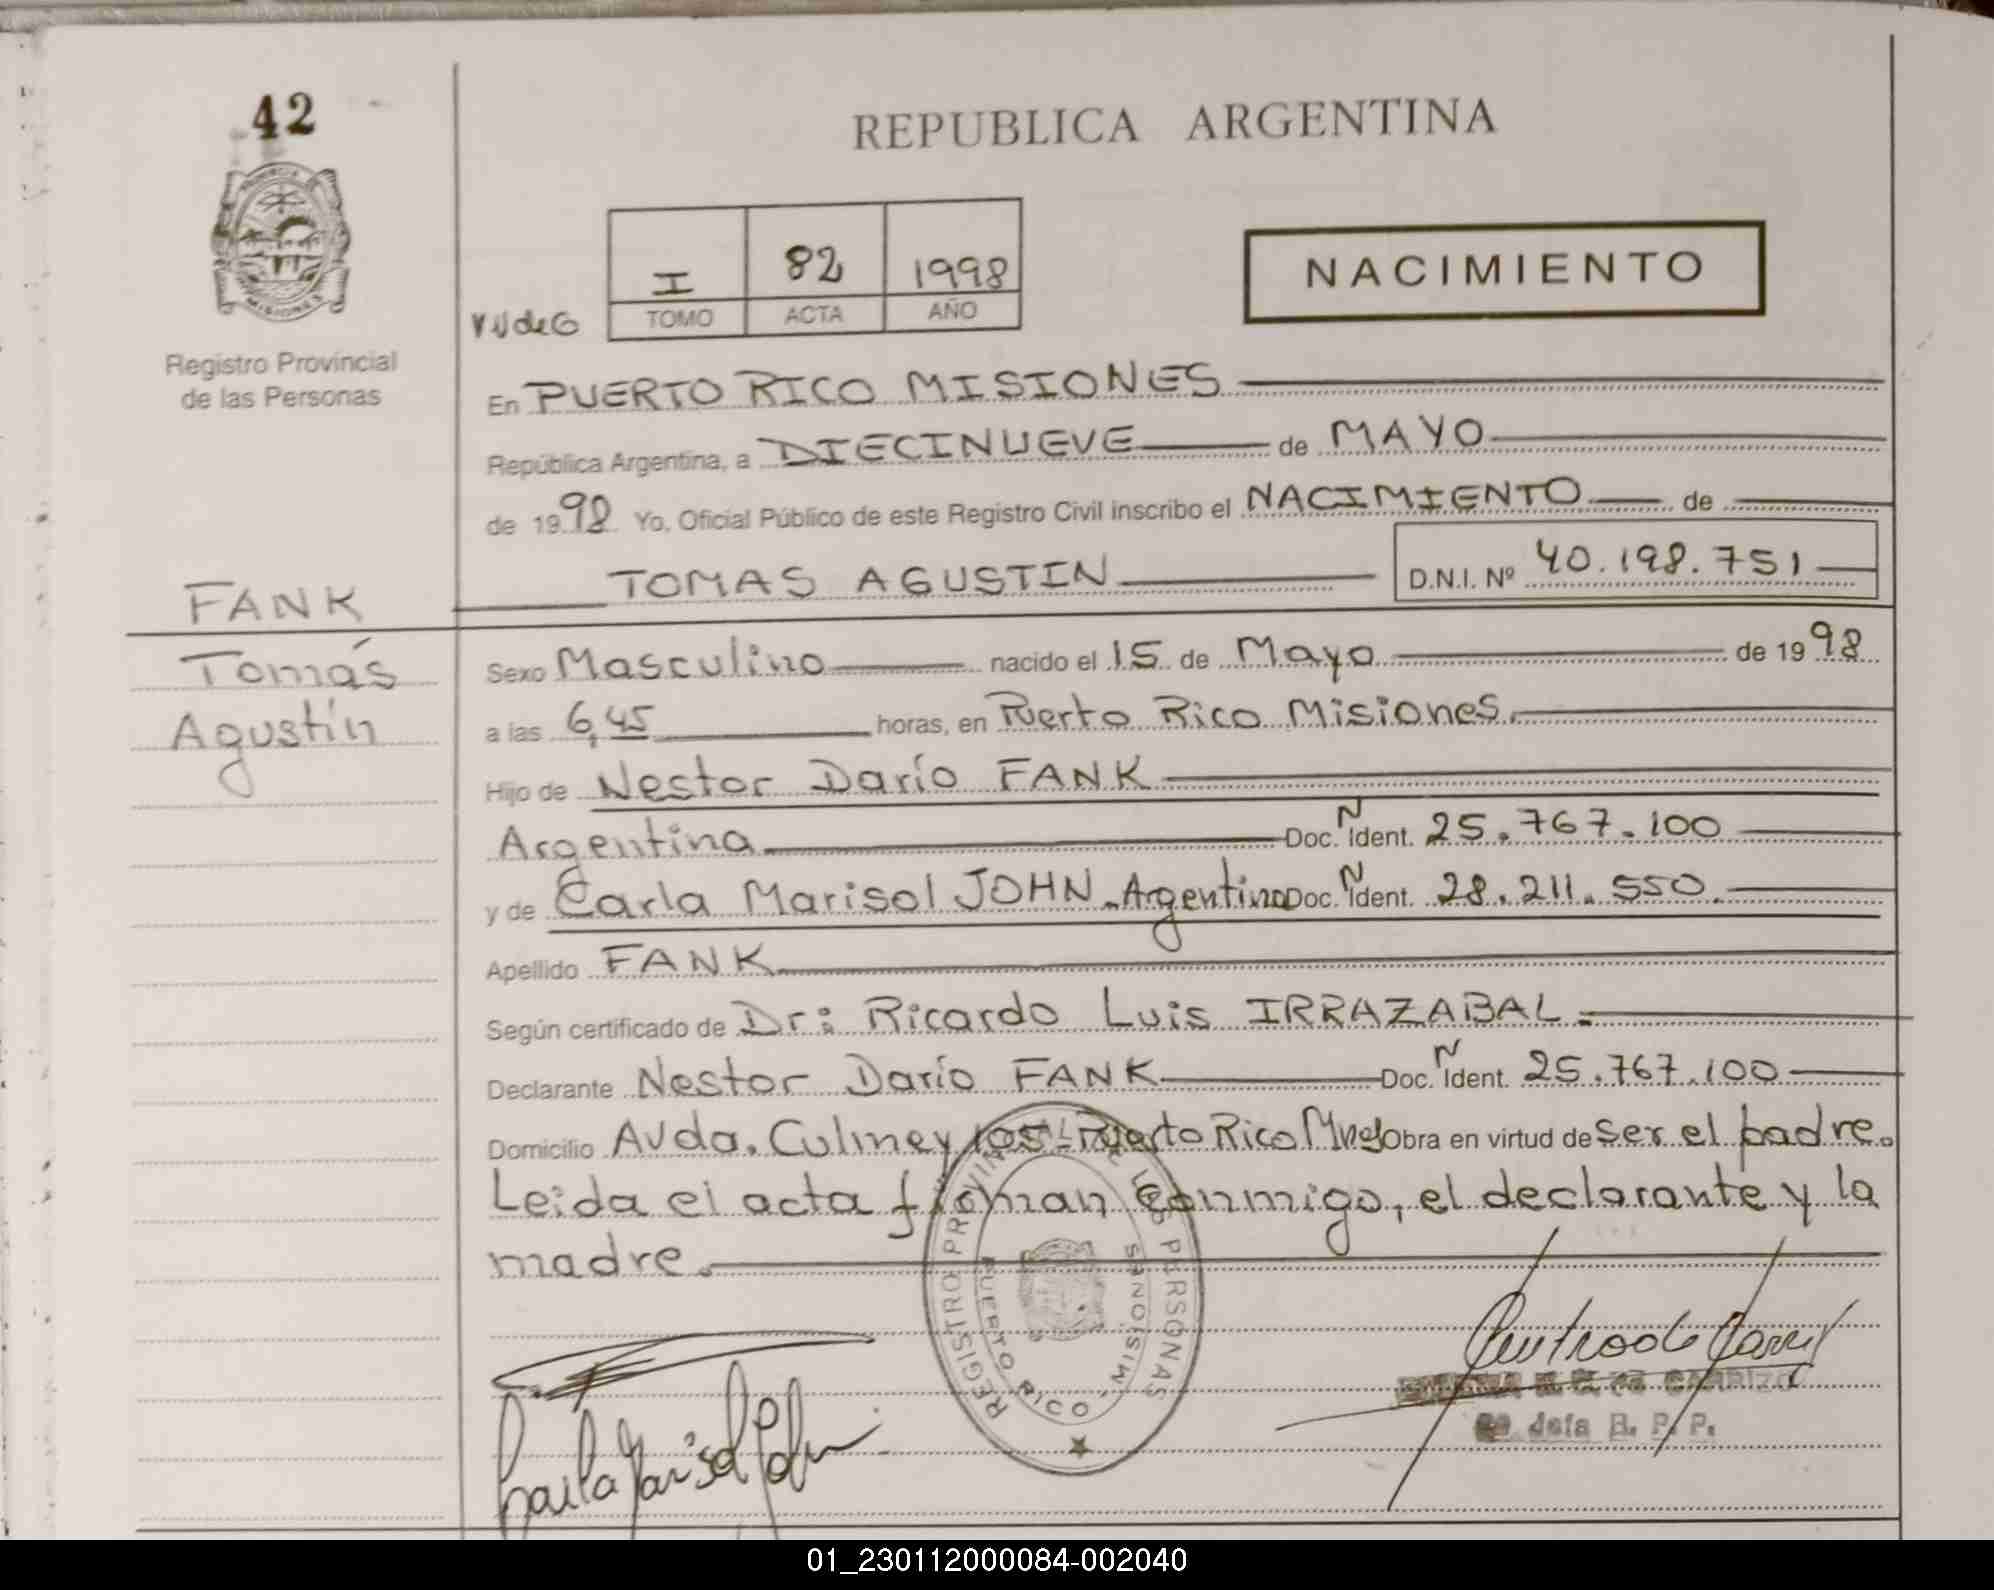 42
REPUBLICA ARGENTINA
PROVINCIA DE MISIONES
Registro Provincial
de las Personas
I 82 1998
TOMO ACTA AÑO
NACIMIENTO
En PUERTO RICO MISIONES
República Argentina, a DIECINUEVE de MAYO
de 1998 Yo, Oficial Público de este Registro Civil inscribo el NACIMIENTO de
TOMAS AGUSTIN D.N.I. Nº 40.198.751
FANK
Tomás
Agustín
Sexo Masculino nacido el 15 de Mayo de 1998
a las 6,45 horas, en Puerto Rico Misiones.
Hijo de Nestor Darío FANK
Argentina Doc. Ñ Ident. 25.767.100
y de Carla Marisol JOHN - Argentina Doc. Ñ Ident. 28.211.550.
Apellido FANK
Según certificado de Dr: Ricardo Luis IRRAZABAL.
Declarante Nestor Darío FANK Doc. Ñ Ident. 25.767.100
Domicilio Avda. Culmey 105 - Puerto Rico Mnes Obra en virtud de ser el padre.
Leida el acta firman conmigo, el declarante y la
madre.
REGISTRO PROVINCIAL DE LAS PERSONAS
PUERTO RICO - MISIONES
Carla Marisol John
DE CARRIZO
Jefa R. P. P.
01_230112000084-002040